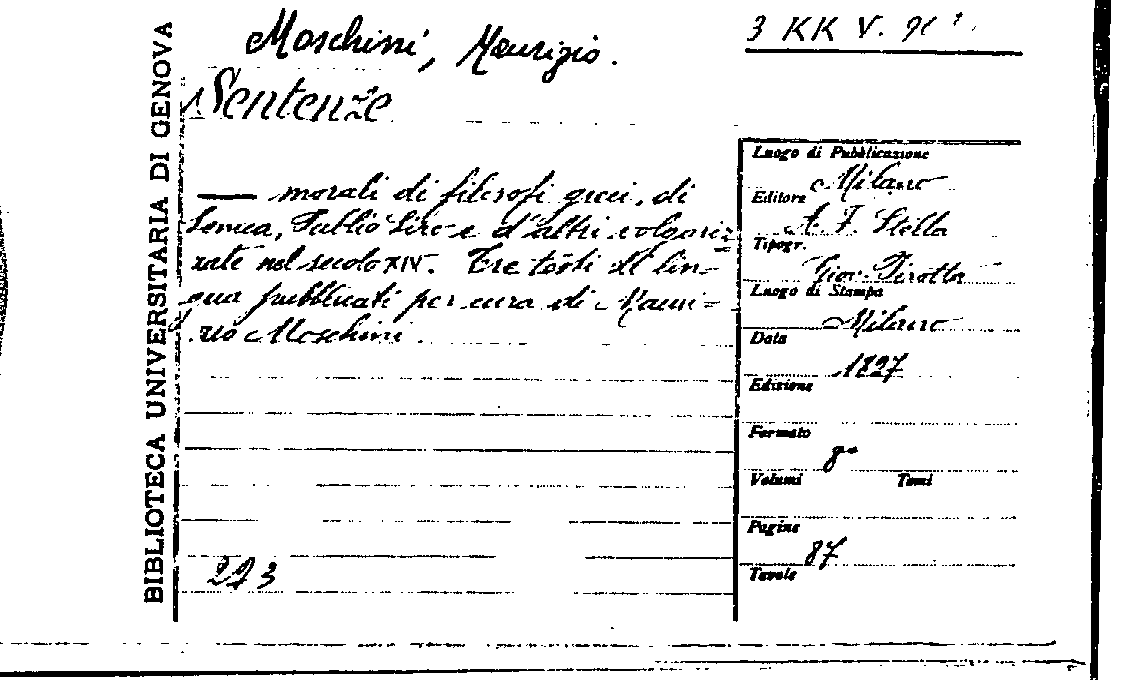 BIBLIOTECA UNIVERSITARIA DI GENOVA
Moschini, Maurizio.
3 KK V.
Sentenze
— morali di filosofi greci, di
Seneca, Publio Siro e d'altri volgariz=
zate nel secolo XIV. Tre testi di lin-
gua pubblicati per cura di Mauri-
zio Moschini.
Luogo di Pubblicazione
Milano
Editore
A. F. Stella
Tipogr.
Giov. Pirotta
Luogo di Stampa
Milano
Data
1827
Edizione
Formato
8°
Volumi Tomi
Pagine
87
Tavole